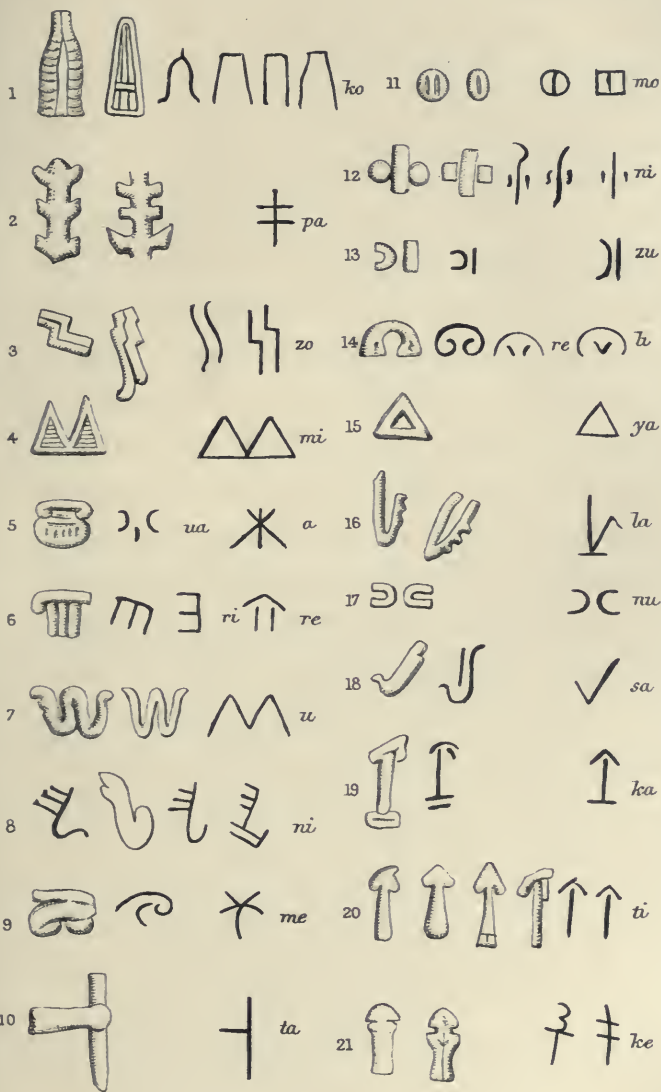 1 ko
2 pa
3 zo
4 mi
5 ua a
6 ri re
7 u
8 ni
9 me
10 ta
11 mo
12 ni
13 zu
14 re
15 ya
16 la
17 nu
18 sa
19 ka
20 ti
21 ke